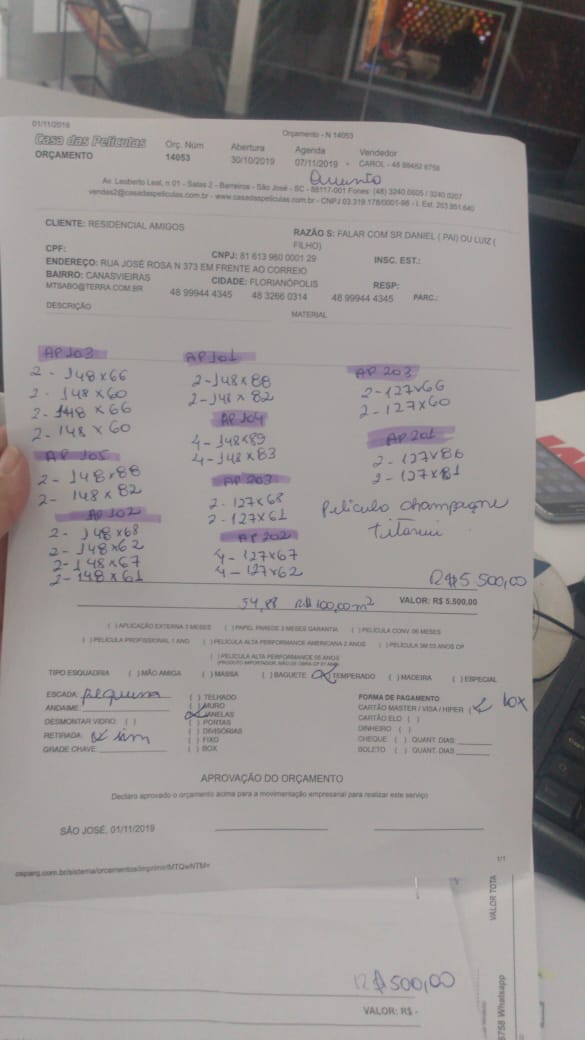 01/11/2019
Orçamento - N 14053
Casa das Películas
ORÇAMENTO
Orç. Núm
14053
Abertura
30/10/2019
Agenda
07/11/2019 -
Vendedor
CAROL - 48 98482 6758
Quinta
Av. Leoberto Leal, n 01 - Salas 2 - Barreiros - São José - SC - 88117-001 Fones: (48) 3240.0605 / 3240.0207
vendas2@casadaspeliculas.com.br - www.casadaspeliculas.com.br - CNPJ 03.319.178/0001-98 - I. Est. 253.951.640
CLIENTE: RESIDENCIAL AMIGOS
RAZÃO S: FALAR COM SR DANIEL ( PAI) OU LUIZ (
FILHO)
CPF:
CNPJ: 81 613 960 0001 29
INSC. EST.:
ENDEREÇO: RUA JOSÉ ROSA N 373 EM FRENTE AO CORREIO
BAIRRO: CANASVIEIRAS
CIDADE: FLORIANÓPOLIS
RESP:
MTSABO@TERRA.COM.BR
48 99944 4345
48 3266 0314
48 99944 4345
PARC.:
DESCRIÇÃO
MATERIAL
AP 103
2 - 148x66
2 - 148x60
2 - 148x66
2 - 148x60
AP 105
2 - 148x88
2 - 148x82
AP 102
2 - 148x68
2 - 148x62
2 - 148x67
2 - 148x61
AP 101
2 - 148x88
2 - 148x82
AP 104
4 - 148x89
4 - 148x83
AP 203
2 - 127x68
2 - 127x61
AP 202
4 - 127x67
4 - 127x62
AP 203
2 - 127x66
2 - 127x60
AP 201
2 - 127x86
2 - 127x81
Película champagne
R$5.500,00
54,88 R$100,00 m²
VALOR: R$ 5.500,00
( ) APLICAÇÃO EXTERNA 3 MESES ( ) PAPEL PAREDE 3 MESES GARANTIA ( ) PELÍCULA CONV. 06 MESES
( ) PELÍCULA PROFISSIONAL 1 ANO ( ) PELÍCULA ALTA PERFORMANCE AMERICANA 2 ANOS ( ) PELÍCULA 3M 03 ANOS CP
( ) PELÍCULA ALTA PERFORMANCE 05 ANOS
(PRODUTO IMPORTADOR, MÃO DE OBRA CP 01 ANO)
TIPO ESQUADRIA ( ) MÃO AMIGA ( ) MASSA ( ) BAGUETE (x) TEMPERADO ( ) MADEIRA ( ) ESPECIAL
ESCADA: pequena
ANDAIME:
DESMONTAR VIDRO ( )
RETIRADA: x sim
GRADE CHAVE:
( ) TELHADO
( ) MURO
(x) JANELAS
( ) PORTAS
( ) DIVISÓRIAS
( ) FIXO
( ) BOX
FORMA DE PAGAMENTO
CARTÃO MASTER / VISA / HIPER (x 10x
CARTÃO ELO ( )
DINHEIRO ( )
CHEQUE ( ) QUANT. DIAS:
BOLETO ( ) QUANT. DIAS:
APROVAÇÃO DO ORÇAMENTO
Declaro aprovado o orçamento acima para a movimentação empresarial para realizar este serviço
SÃO JOSÉ, 01/11/2019
osparq.com.br/sistema/orcamentos/imprimir/MTQwNTM=
1/1
VALOR TOTA
6758 Whatsapp
500,00
VALOR: R$ -